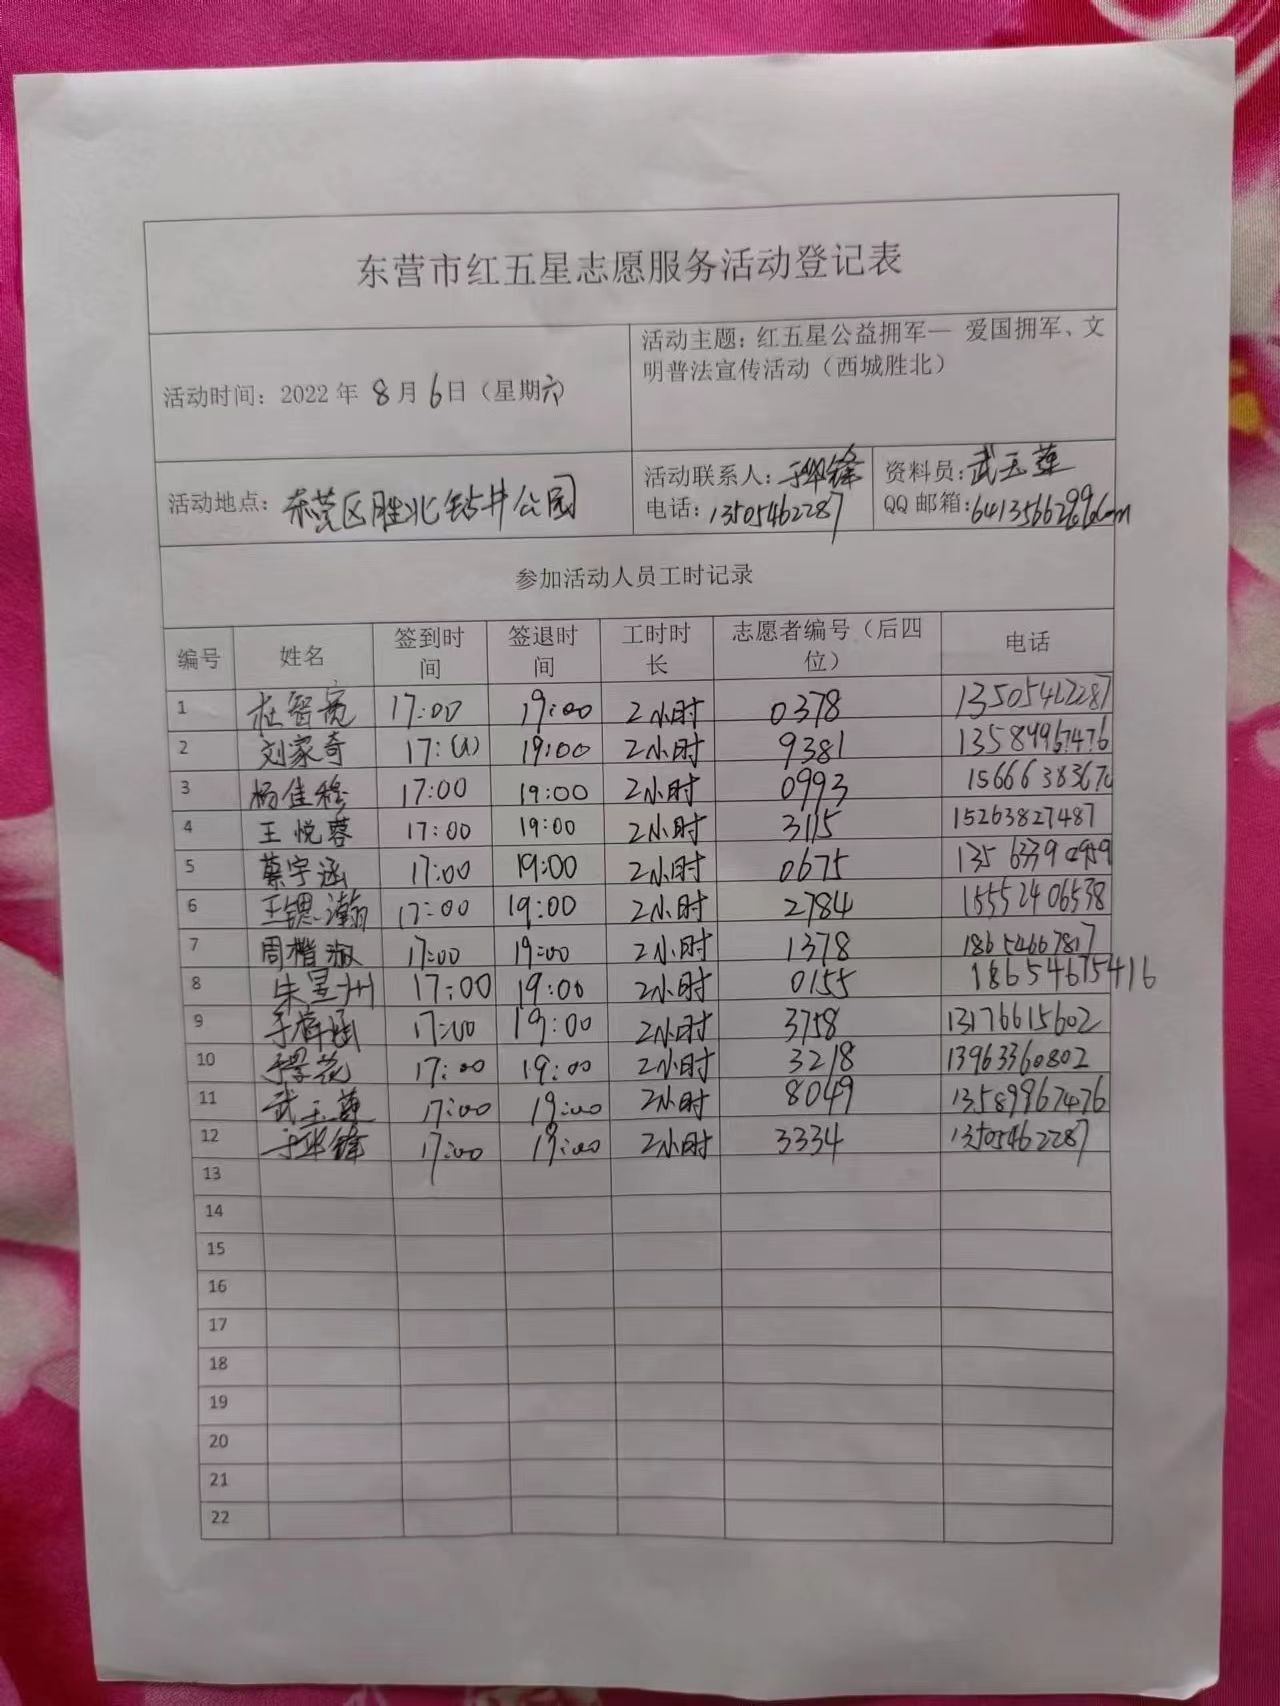 东营市红五星志愿服务活动登记表
活动时间：2022 年 8 月 6 日（星期六）
活动主题：红五星公益拥军— 爱国拥军、文
明普法宣传活动（西城胜北）
活动地点：东营区胜北钻井公园
活动联系人：于华锋
电话：13505462287
资料员：武玉莲
QQ 邮箱：
参加活动人员工时记录
编号 姓名 签到时间 签退时间 工时时长 志愿者编号（后四位） 电话
1 杜智 17:00 19:00 2小时 0378 13505462287
2 刘家奇 17:00 19:00 2小时 9381 13589967476
3 杨佳穆 17:00 19:00 2小时 0993 15666383670
4 王悦蓉 17:00 19:00 2小时 3115 15263827487
5 蔡宇涵 17:00 19:00 2小时 0675
6 王锶瀚 17:00 19:00 2小时 2784 15552406538
7 周楷淑 17:00 19:00 2小时 1378 18654667817
8 朱昱州 17:00 19:00 2小时 0155 18654675416
9 17:00 19:00 2小时 3758 13176615602
10 17:00 19:00 2小时 3218 13963360802
11 武玉莲 17:00 19:00 2小时 8049 13589967476
12 于华锋 17:00 19:00 2小时 3334 13505462287
13
14
15
16
17
18
19
20
21
22